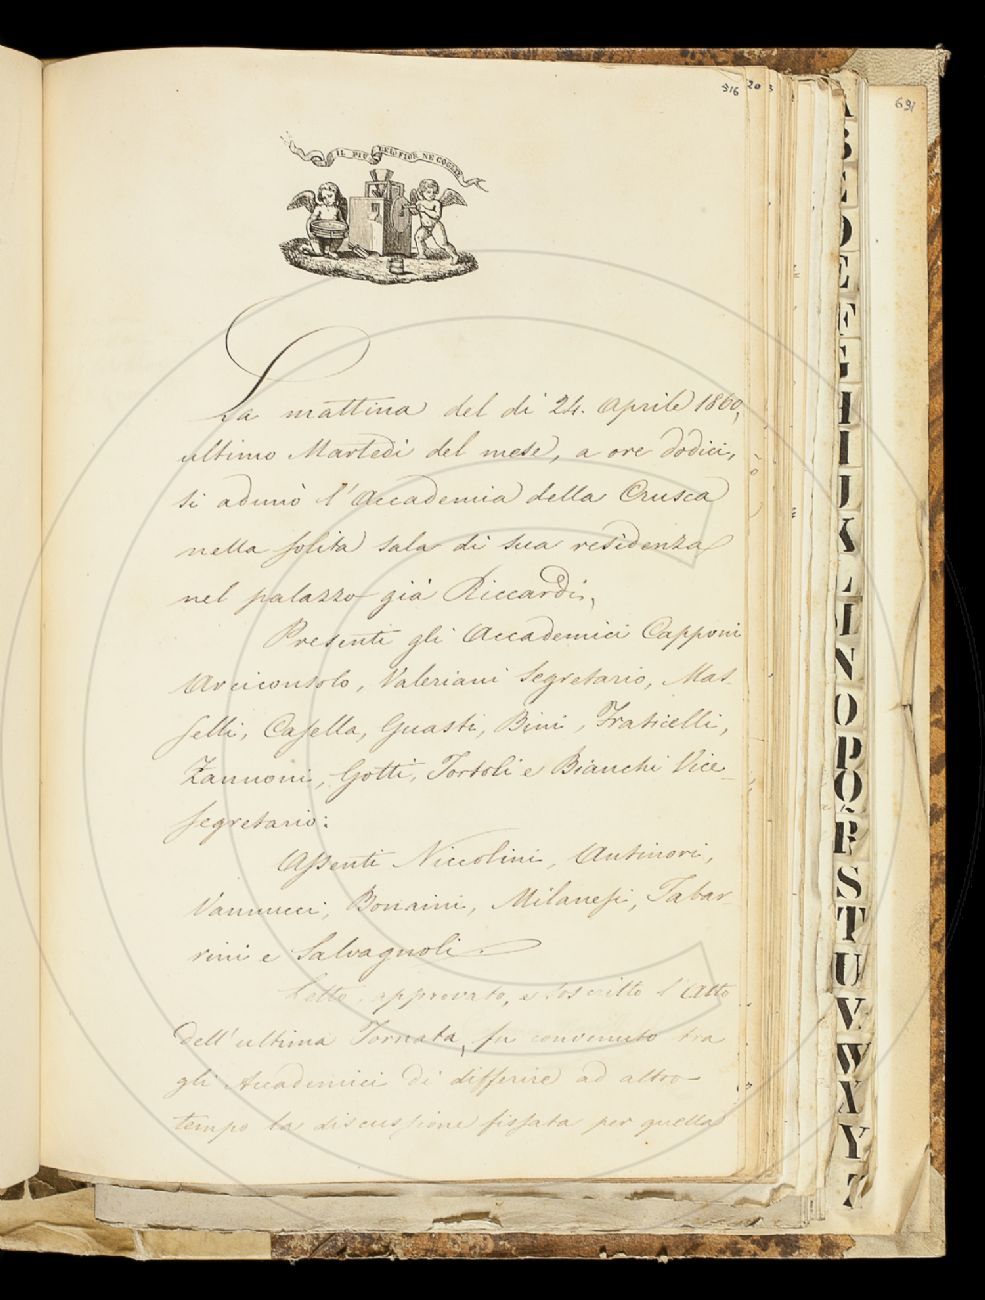 316
20
3
691
IL PIÙ BEL FIOR NE COGLIE
La mattina del dì 24. Aprile 1860,
ultimo Martedì del mese, a ore dodici,
si adunò l'Accademia della Crusca
nella solita sala di sua residenza
nel palazzo già Riccardi.
Presenti gli Accademici Capponi
Arciconsolo, Valeriani Segretario, Mas-
selli, Casella, Guasti, Bini, Fraticelli,
Zannoni, Gotti, Tortoli e Bianchi Vice-
segretario:
Assenti Niccolini, Antinori,
Vannucci, Bonaini, Milanesi, Tabar-
rini e Salvagnoli
Letto, approvato, e soscritto l'Atto
dell'ultima Tornata, fu convenuto tra
gli Accademici di differire ad altro
tempo la discussione fissata per quella
A
B
C
D
E
F
G
H
I
J
K
L
M
N
O
P
Q
R
S
T
U
V
W
X
Y
Z